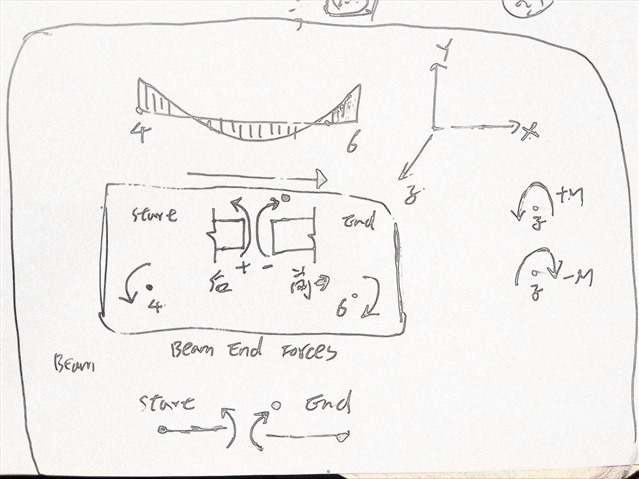 Y
4
6
X
z
Start
End
+M
z
后
+
-
前
4
6
-M
z
Beam End Forces
Beam
Start
End